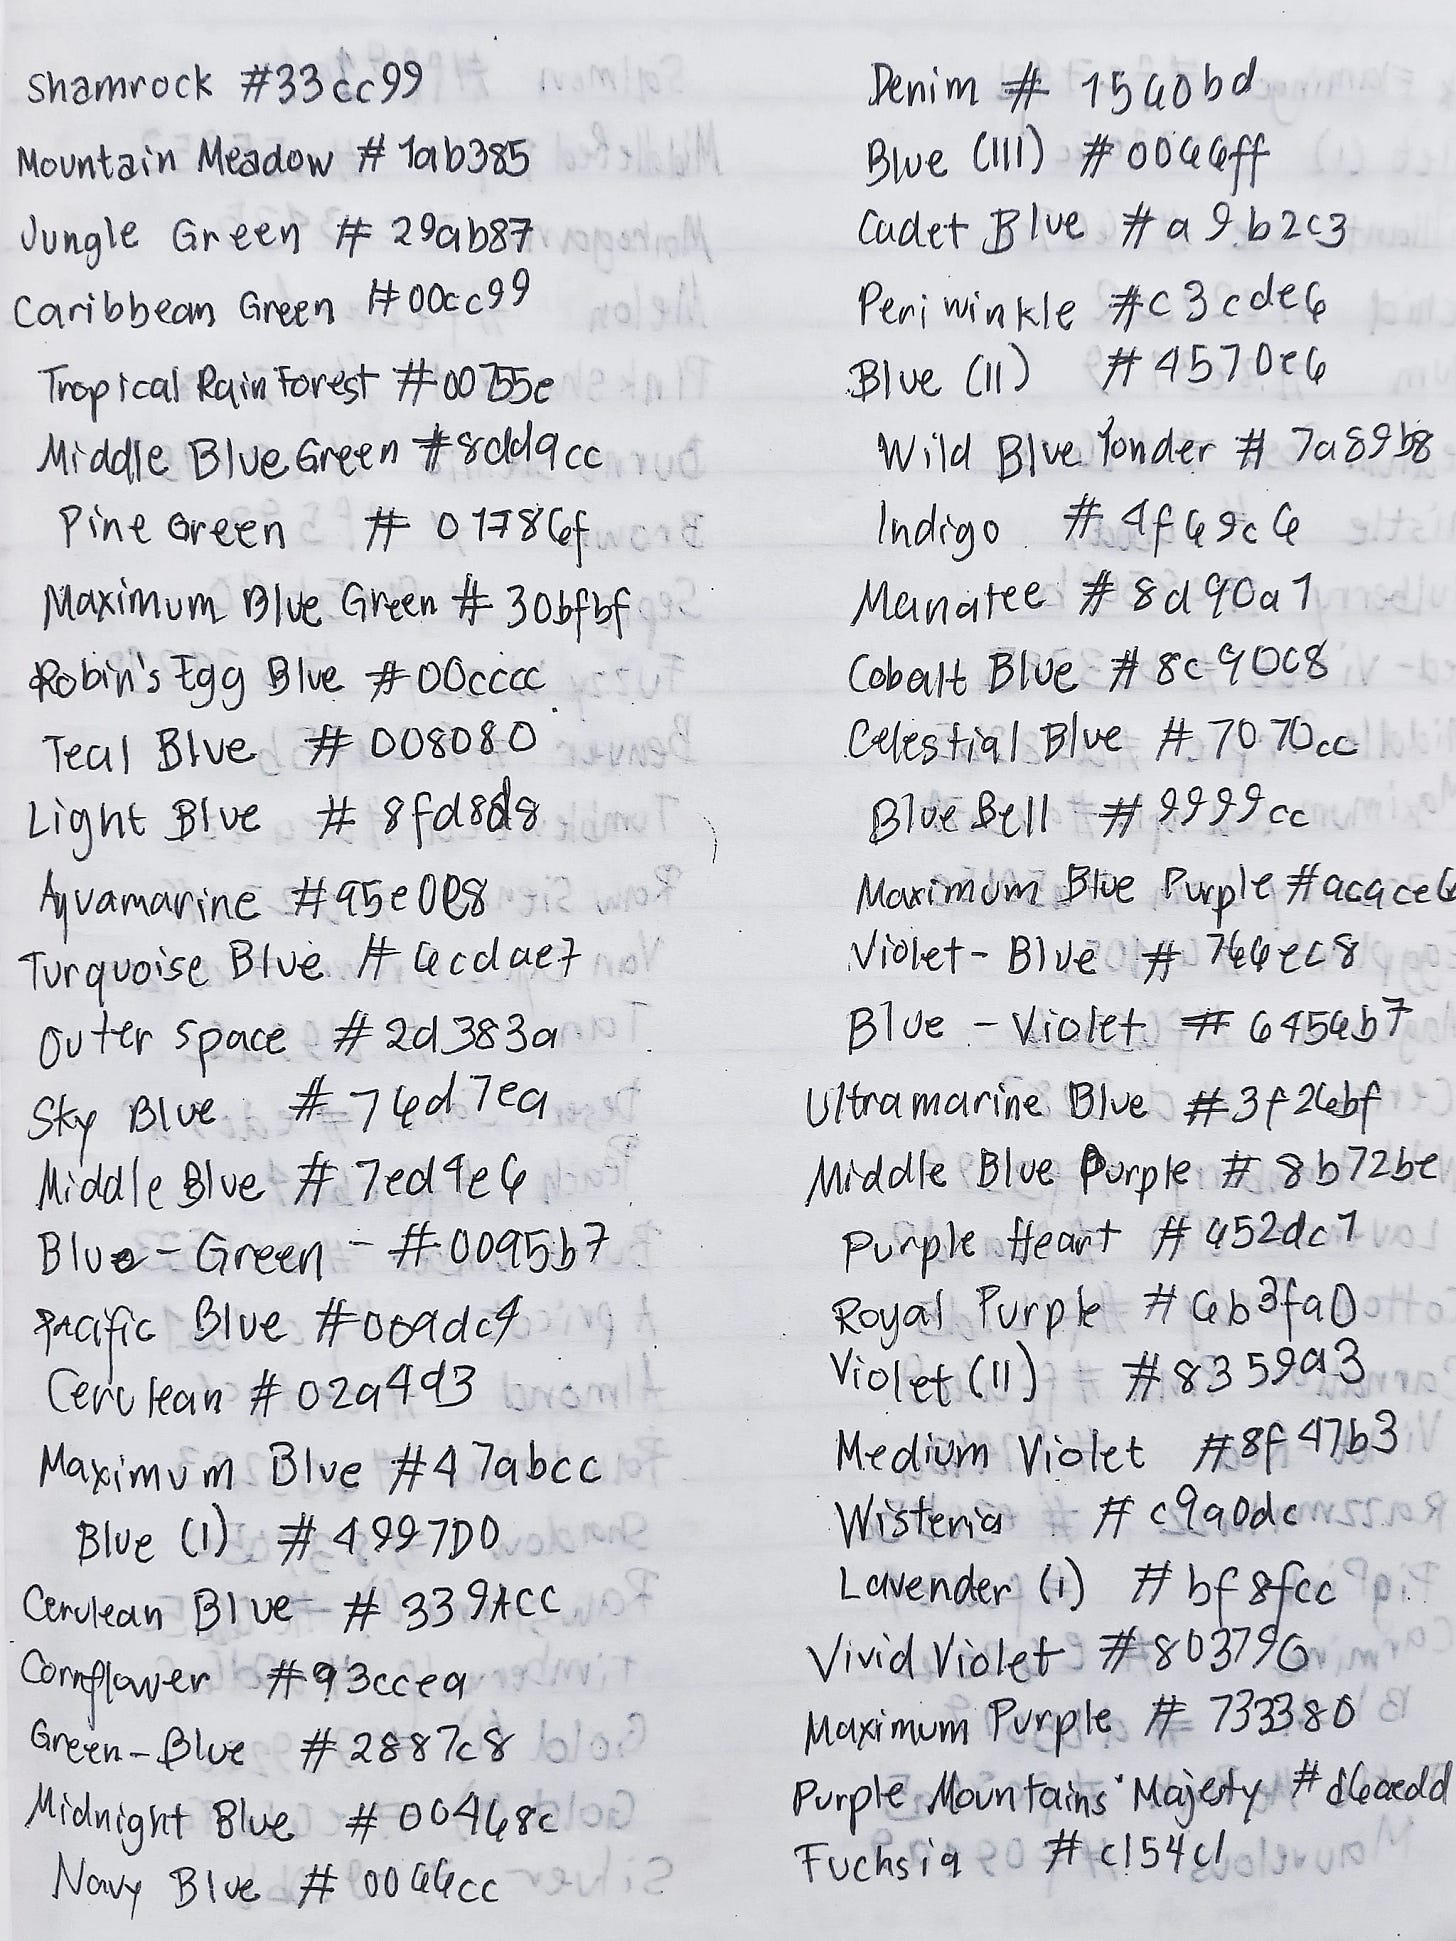 Shamrock #33cc99
Mountain Meadow #1ab385
Jungle Green #29ab87
Caribbean Green #00cc99
Tropical Rain Forest #00755e
Middle Blue Green #8dd9cc
Pine Green #01786f
Maximum Blue Green #30bfbf
Robin's Egg Blue #00cccc
Teal Blue #008080
Light Blue #8fd8d8
Aquamarine #95e0e8
Turquoise Blue #6cdae7
Outer space #2d383a
Sky Blue #76d7ea
Middle Blue #7ed4e6
Blue-Green - #0095b7
Pacific Blue #009dc4
Cerulean #02a4d3
Maximum Blue #47abcc
Blue (I) #4997D0
Cerulean Blue #339ACC
Cornflower #93ccea
Green-Blue #2887c8
Midnight Blue #00468c
Navy Blue #0066cc
Denim #1560bd
Blue (III) #0066ff
Cadet Blue #a9b2c3
Periwinkle #c3cde6
Blue (II) #4570e6
Wild Blue Yonder #7a89b8
Indigo #4f69c6
Manatee #8d90a1
Cobalt Blue #8c90c8
Celestial Blue #7070cc
Blue Bell #9999cc
Maximum Blue Purple #acace6
Violet-Blue #766ec8
Blue-Violet #6456b7
Ultramarine Blue #3f26bf
Middle Blue Purple #8b72be
Purple Heart #652dc1
Royal Purple #6b3fa0
Violet (II) #8359a3
Medium Violet #8f47b3
Wisteria #c9a0dc
Lavender (I) #bf8fcc
Vivid Violet #803790
Maximum Purple #733380
Purple Mountains' Majesty #d6aedd
Fuchsia #c154c1